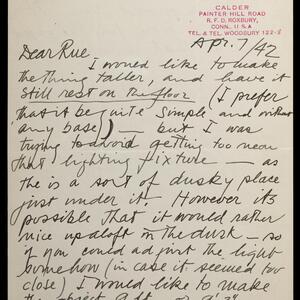 CALDER
PAINTER HILL ROAD
R. F. D. ROXBURY,
CONN. U S A
TEL. & TEL. WOODBURY 122-2
Apr. 7/42
Dear Rue,
I would like to make
the thing taller, and have it
still rest on the floor (I prefer
that it be quite simple, and without
any base) — but I was
trying to avoid getting too near
that lighting fixture — as
the is a sort of dusky place
just under it. However its
possible that it would rather
nice up aloft in the dusk — so
if you could adjust the light
somehow (in case it seemed too
close) I would like to make
the object